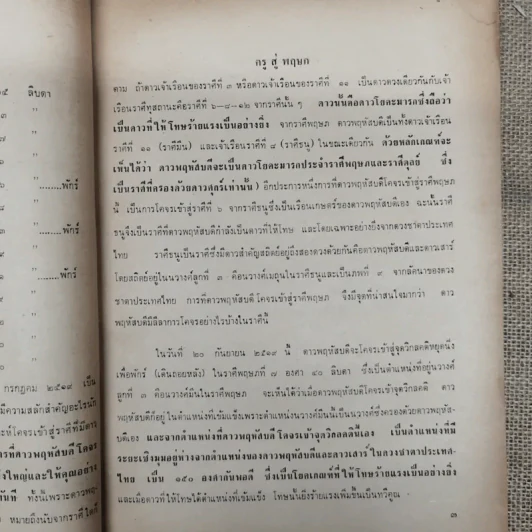 ๑๕ ลิบดา
๖ " ........พักร์
๙ " ........พักร์
" ........พักร์
กรกฎาคม ๒๕๑๙ เป็น
มีความสลักสำคัญอะไรนัก
ะห์โคจรเข้าสู่ราศีที่มีดาว
การที่ดาวพฤหัสบดีโคจร
งใหญ่และให้คุณอย่าง
ทันที ทั้งนี้เพราะดาวพฤ-
หมายถึงนับจากราศี
ครู สู่ พฤษภ
ตาม ถ้าดาวเจ้าเรือนของราศีที่ ๓ หรือดาวเจ้าเรือนของราศีที่ ๑๑ เป็นดาวดวงเดียวกันกับเจ้า
เรือนราศีทุสถานะคือราศีที่ ๖-๘-๑๒ จากราศีนั้น ๆ ดาวนั้นคือดาวโยคะมารกซึ่งถือว่า
เป็นดาวที่ให้โทษร้ายแรงเป็นอย่างยิ่ง จากราศีพฤษภ ดาวพฤหัสบดีเป็นทั้งดาวเจ้าเรือน
ราศีที่ ๑๑ (ราศีมีน) และเจ้าเรือนราศีที่ ๘ (ราศีธนู) ในขณะเดียวกัน ด้วยหลักเกณฑ์จะ
เห็นได้ว่า ดาวพฤหัสบดีจะเป็นดาวโยคะมารกประจำราศีพฤษภและราศีตุลย์ ซึ่ง
เป็นราศีที่ครองด้วยดาวศุกร์เท่านั้น) อีกประการหนึ่งการที่ดาวพฤหัสบดีโคจรเข้าสู่ราศีพฤษภ
นี้ เป็นการโคจรเข้าสู่ราศีที่ ๖ จากราศีธนูซึ่งเป็นเรือนเกษตร์ของดาวพฤหัสบดีเอง ฉะนั้นราศี
ธนูจึงเป็นราศีที่ดาวพฤหัสบดีกำลังเป็นดาวที่ให้โทษ และโดยเฉพาะอย่างยิ่งจากดวงชาตาประเทศ
ไทย ราศีธนูเป็นราศีซึ่งมีดาวสำคัญสถิตย์อยู่ถึงสองดวงด้วยกันคือดาวพฤหัสบดีและดาวเสาร์
โดยสถิตย์อยู่ในนวางค์ลูกที่ ๓ คือนวางค์เมถุนในราศีธนูและเป็นภพที่ ๙ จากลัคนาของดวง
ชาตาประเทศไทย การที่ดาวพฤหัสบดีโคจรเข้าสู่ราศีพฤษภ จึงมีจุดที่น่าสนใจมากว่า ดาว
พฤหัสบดีมีลีลาการโคจรอย่างไรบ้างในราศีนี้
ในวันที่ ๒๐ กันยายน ๒๕๑๙ นี้ ดาวพฤหัสบดีจะโคจรเข้าสู่จุดวิกลคติหยุดนิ่ง
เพื่อพักร์ (เดินถอยหลัง) ในราศีพฤษภที่ ๗ องศา ๔๐ ลิบดา ซึ่งเป็นตำแหน่งที่อยู่นวางค์
ลูกที่ ๓ คือนวางค์มีนในราศีพฤษภ จะเห็นได้ว่าเมื่อดาวพฤหัสบดีโคจรเข้าสู่จุดวิกลคติ ดาว
พฤหัสบดีก็อยู่ในตำแหน่งที่เข้มแข็งเพราะตำแหน่งนวางค์มีนนี้เป็นนวางค์ซึ่งครองด้วยดาวพฤหัส-
บดีเอง และจากตำแหน่งที่ดาวพฤหัสบดีโคจรเข้าจุดวิกลคตินี้เอง เป็นตำแหน่งที่มี
ระยะเชิงมุมอยู่ห่างจากตำแหน่งของดาวพฤหัสบดีและดาวเสาร์ในดวงชาตาประเทศ-
ไทย เป็น ๑๕๐ องศากับพอดี ซึ่งเป็นโยคเกณฑ์ที่ให้โทษร้ายแรงเป็นอย่างยิ่ง
และเมื่อดาวที่ให้โทษได้ตำแหน่งที่เข้มแข็ง โทษนั้นยิ่งร้ายแรงเพิ่มขึ้นเป็นทวีคูณ
๓